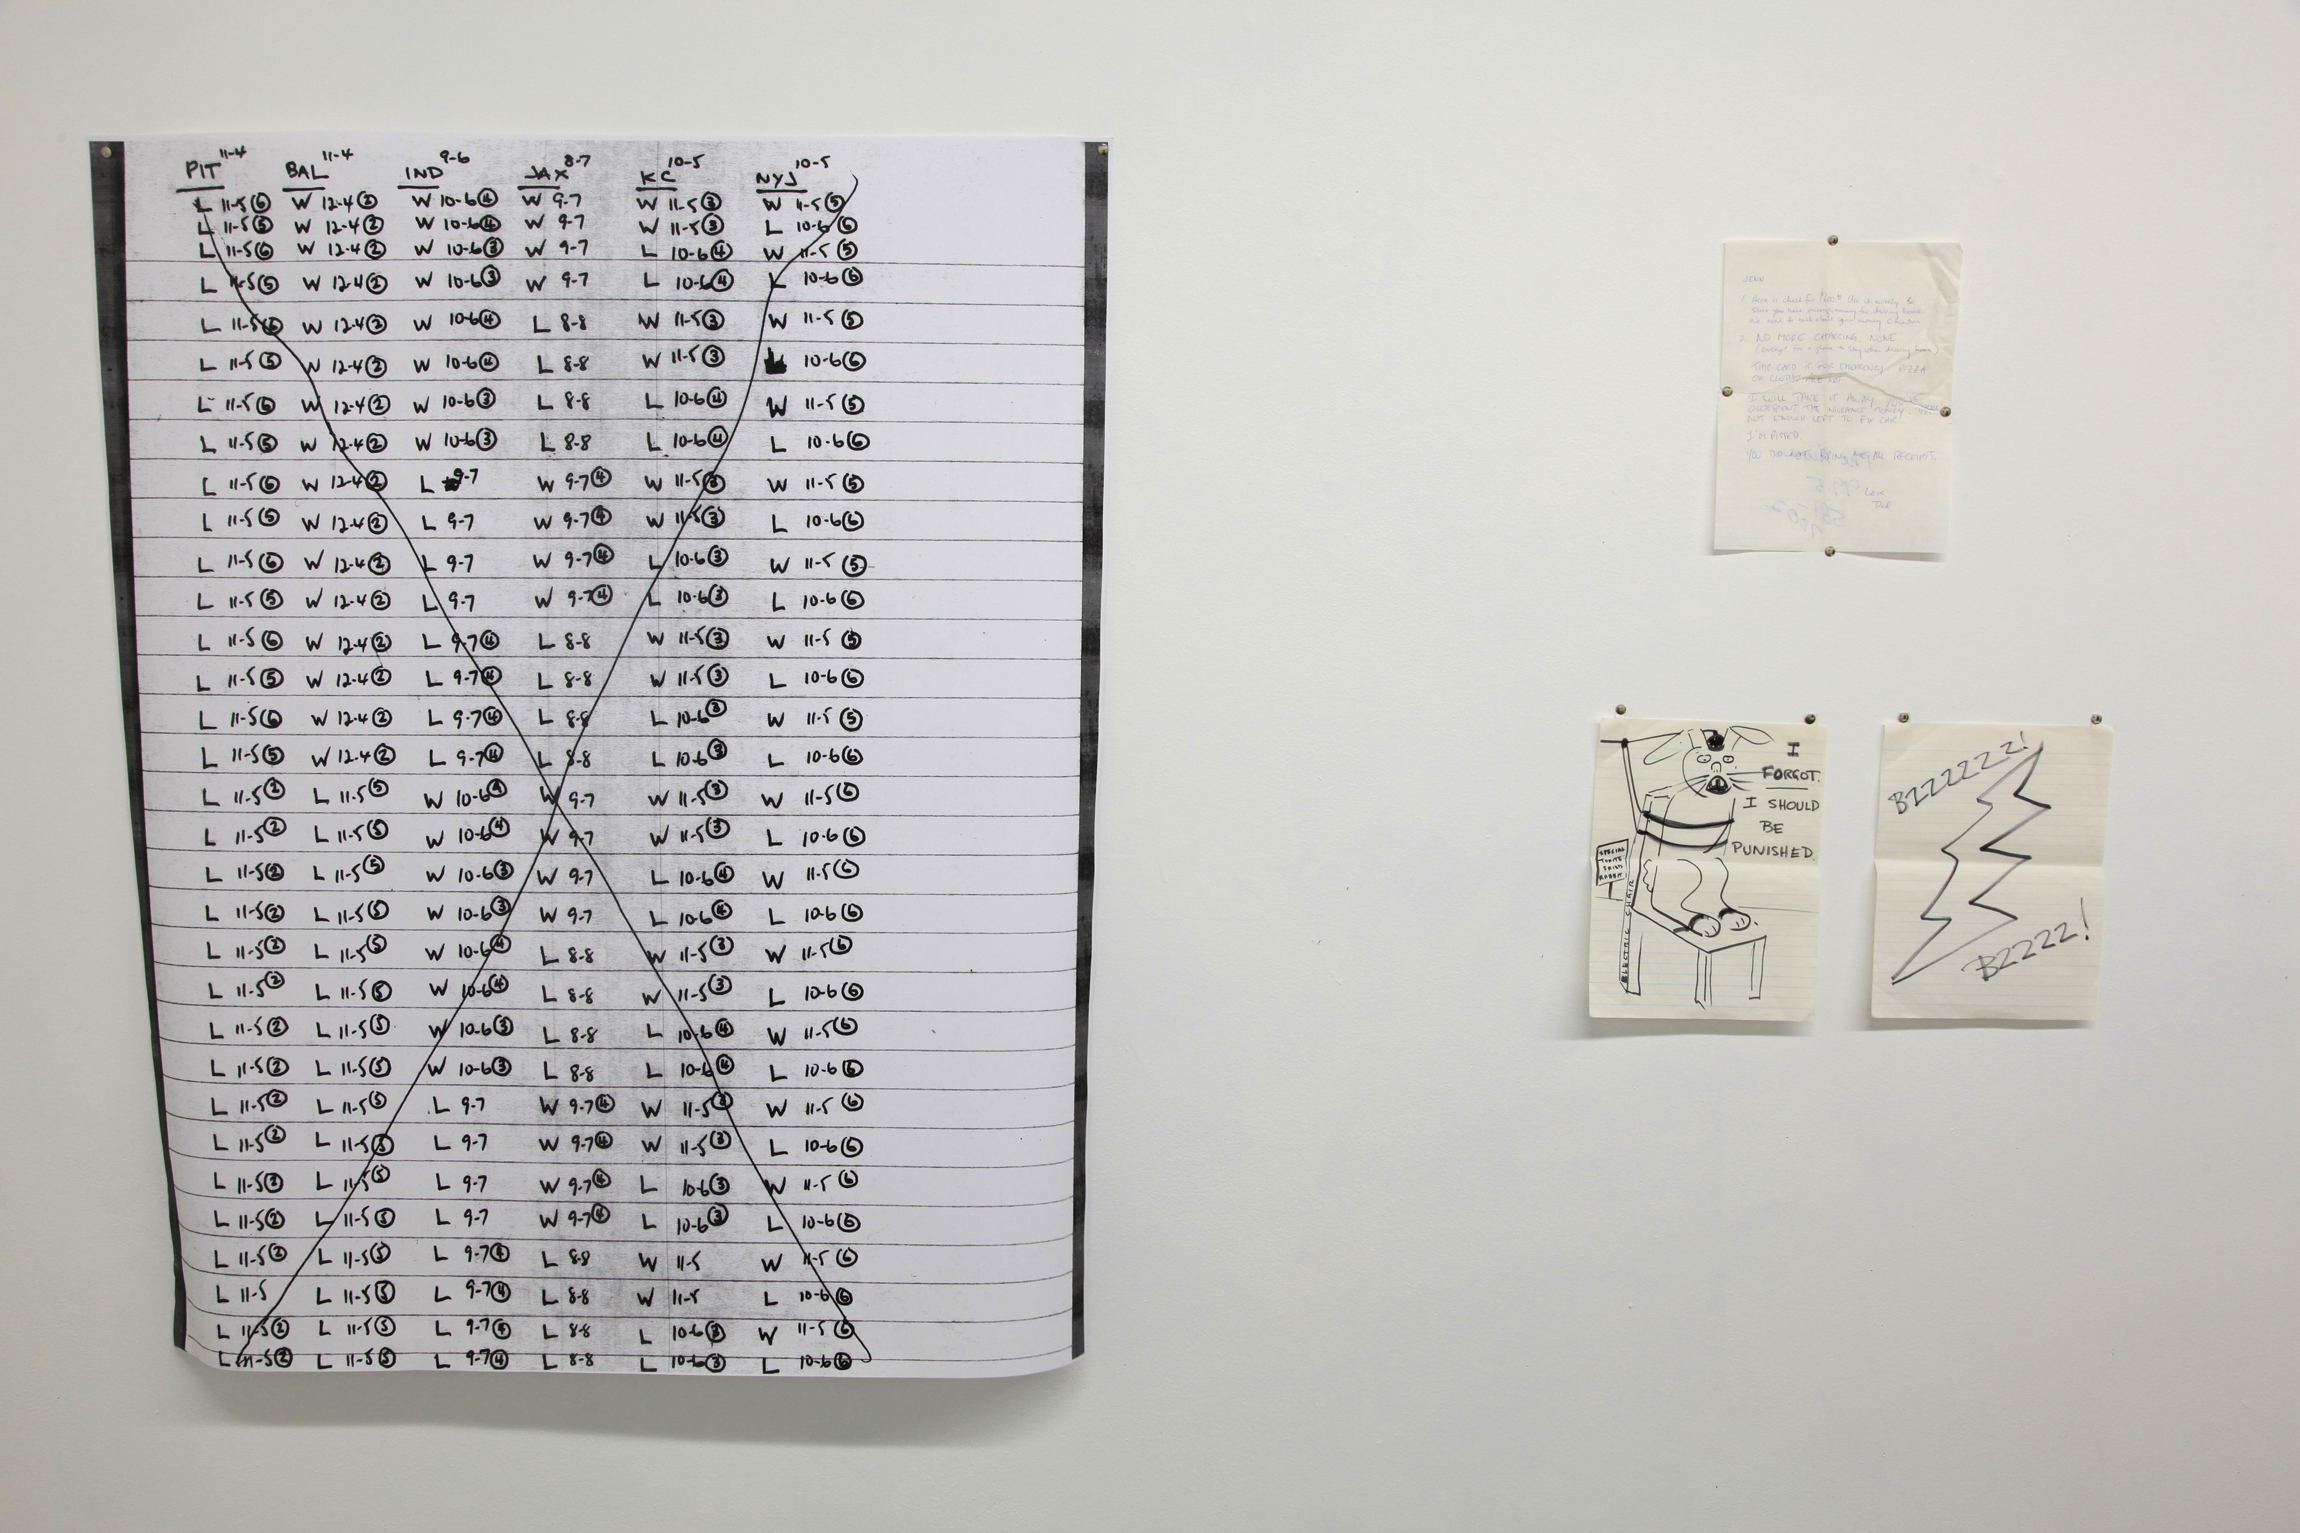 PIT 11-4 BAL 11-4 IND 9-6 JAX 8-7 KC 10-5 NYJ 10-5
L 11-5 ⑥ W 12-4 ② W 10-6 ④ W 9-7 W 11-5 ③ W 11-5 ⑤
L 11-5 ⑤ W 12-4 ② W 10-6 ④ W 9-7 W 11-5 ③ L 10-6 ⑥
L 11-5 ⑥ W 12-4 ② W 10-6 ③ W 9-7 L 10-6 ④ W 11-5 ⑤
L 11-5 ⑤ W 12-4 ② W 10-6 ③ W 9-7 L 10-6 ④ L 10-6 ⑥
L 11-5 ⑥ W 12-4 ② W 10-6 ④ L 8-8 W 11-5 ③ W 11-5 ⑤
L 11-5 ⑤ W 12-4 ② W 10-6 ④ L 8-8 W 11-5 ③ L 10-6 ⑥
L 11-5 ⑥ W 12-4 ② W 10-6 ③ L 8-8 L 10-6 ④ W 11-5 ⑤
L 11-5 ⑤ W 12-4 ② W 10-6 ③ L 8-8 L 10-6 ④ L 10-6 ⑥
L 11-5 ⑥ W 12-4 ② L 9-7 W 9-7 ④ W 11-5 ③ W 11-5 ⑤
L 11-5 ⑤ W 12-4 ② L 9-7 W 9-7 ④ W 11-5 ③ L 10-6 ⑥
L 11-5 ⑥ W 12-4 ② L 9-7 W 9-7 ④ L 10-6 ③ W 11-5 ⑤
L 11-5 ⑤ W 12-4 ② L 9-7 W 9-7 ④ L 10-6 ③ L 10-6 ⑥
L 11-5 ⑥ W 12-4 ② L 9-7 ④ L 8-8 W 11-5 ③ W 11-5 ⑤
L 11-5 ⑤ W 12-4 ② L 9-7 ④ L 8-8 W 11-5 ③ L 10-6 ⑥
L 11-5 ⑥ W 12-4 ② L 9-7 ④ L 8-8 L 10-6 ③ W 11-5 ⑤
L 11-5 ⑤ W 12-4 ② L 9-7 ④ L 8-8 L 10-6 ③ L 10-6 ⑥
L 11-5 ② L 11-5 ⑤ W 10-6 ④ W 9-7 W 11-5 ③ W 11-5 ⑥
L 11-5 ② L 11-5 ⑤ W 10-6 ④ W 9-7 W 11-5 ③ L 10-6 ⑥
L 11-5 ② L 11-5 ⑤ W 10-6 ③ W 9-7 L 10-6 ④ W 11-5 ⑥
L 11-5 ② L 11-5 ⑤ W 10-6 ③ W 9-7 L 10-6 ④ L 10-6 ⑥
L 11-5 ② L 11-5 ⑤ W 10-6 ④ L 8-8 W 11-5 ③ W 11-5 ⑥
L 11-5 ② L 11-5 ⑤ W 10-6 ④ L 8-8 W 11-5 ③ L 10-6 ⑥
L 11-5 ② L 11-5 ⑤ W 10-6 ③ L 8-8 L 10-6 ④ W 11-5 ⑥
L 11-5 ② L 11-5 ⑤ W 10-6 ③ L 8-8 L 10-6 ④ L 10-6 ⑥
L 11-5 ② L 11-5 ⑤ L 9-7 W 9-7 ④ W 11-5 ③ W 11-5 ⑥
L 11-5 ② L 11-5 ⑤ L 9-7 W 9-7 ④ W 11-5 ③ L 10-6 ⑥
L 11-5 ② L 11-5 ⑤ L 9-7 W 9-7 ④ L 10-6 ③ W 11-5 ⑥
L 11-5 ② L 11-5 ⑤ L 9-7 W 9-7 ④ L 10-6 ③ L 10-6 ⑥
L 11-5 ② L 11-5 ⑤ L 9-7 ④ L 8-8 W 11-5 W 11-5 ⑥
L 11-5 L 11-5 ⑤ L 9-7 ④ L 8-8 W 11-5 L 10-6 ⑥
L 11-5 ② L 11-5 ⑤ L 9-7 ④ L 8-8 L 10-6 ③ W 11-5 ⑥
L 11-5 ② L 11-5 ⑤ L 9-7 ④ L 8-8 L 10-6 ③ L 10-6 ⑥
JENN
1. Here is check for Use it wisely &
money for driving home
2. NO MORE CHARGING. NONE.
THIS CARD IS FOR EMERGENCY. PIZZA
OR CLOTHES ARE NOT
I WILL TAKE IT AWAY
OVERSPENT THE INSURANCE MONEY.
NOT ENOUGH LEFT TO FIX CAR.
I'M PISSED.
YOU DID NOT BRING RECEIPT.
LOVE
I
FORGOT.
I SHOULD
BE
PUNISHED.
SPECIAL
TONITE
FRIED
RABBIT
ELECTRIC CHAIR
BZZZZZZ!
BZZZZ!